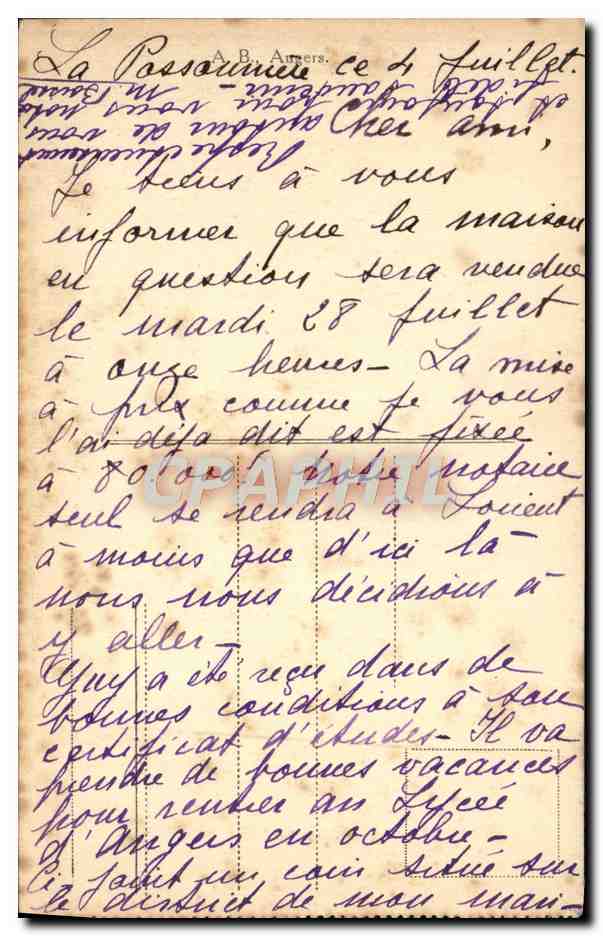 A. B., Angers.
La Possonnière ce 4 Juillet.
Cher ami,
Je tiens à vous
informer que la maison
en question sera vendue
le mardi 28 Juillet
à onze heures - La mise
à prix comme je vous
l'ai déja dit est fixée
à 80 000f notre notaire
seul se rendra à Lorient
à moins que d'ici là
nous nous décidions à
y aller -
Guy a été reçu dans de
bonnes conditions à son
certificat d'études - Il va
prendre de bonnes vacances
pour rentrer au Lycée
d'Angers en octobre -
Ci joint un coin situé sur
le district de mon mari -
autour de vous
pour vous
M.
CPAPHIL